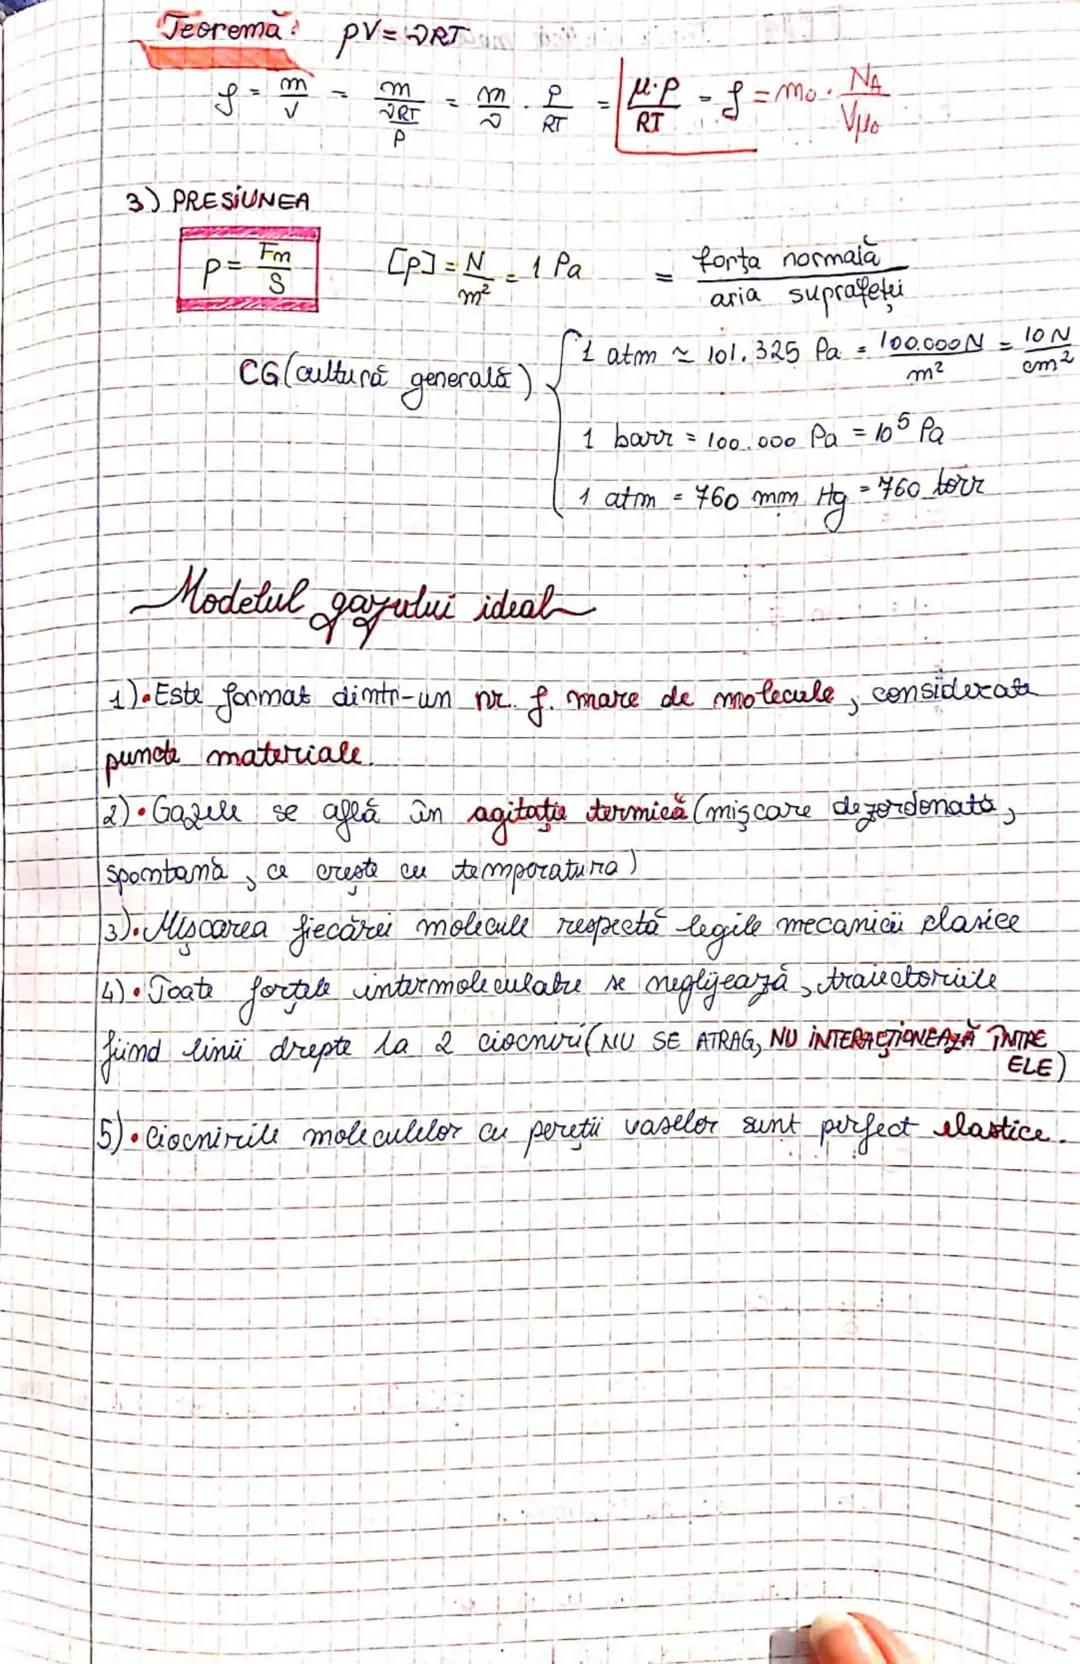 Teoremă: pV = νRT
ρ = m/V = m/(νRT/p) = m/ν · p/RT = μ·p/RT = ρ = m₀ · N_A/Vμ₀
3) PRESIUNEA
p = Fn/S [p] = N/m² = 1 Pa = forța normală/aria suprafeței
CG (cultură generală) { 1 atm ≃ 101.325 Pa = 100.000N/m² = 10 N/cm²
1 barr = 100.000 Pa = 10⁵ Pa
1 atm = 760 mm Hg = 760 torr
Modelul gazului ideal
1) • Este format dintr-un nr. f. mare de molecule, considerate
puncte materiale.
2) • Gazele se află în agitație termică (mișcare dezordonată,
spontană, ce crește cu temperatura)
3) • Mișcarea fiecărei molecule respectă legile mecanicii clasice
4) • Toate forțele intermoleculare se neglijează, traiectoriile
fiind linii drepte la 2 ciocniri (NU SE ATRAG, NU INTERACȚIONEAZĂ ÎNTRE
ELE)
5) • Ciocnirile moleculelor cu pereții vaselor sunt perfect elastice.